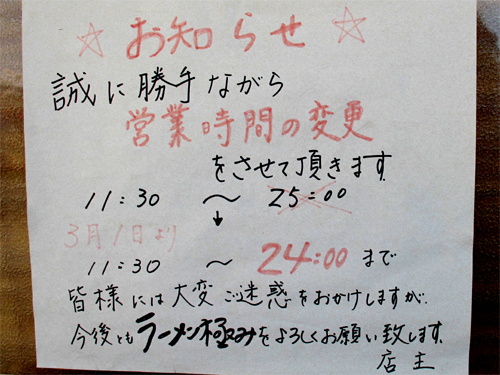 ☆ お知らせ ☆
誠に勝手ながら
営業時間の変更
をさせて頂きます.
11:30 〜 25:00
↓
3月1日より
11:30 〜 24:00 まで
皆様には大変ご迷惑をおかけしますが.
今後ともラーメン極みをよろしくお願い致します.
店主